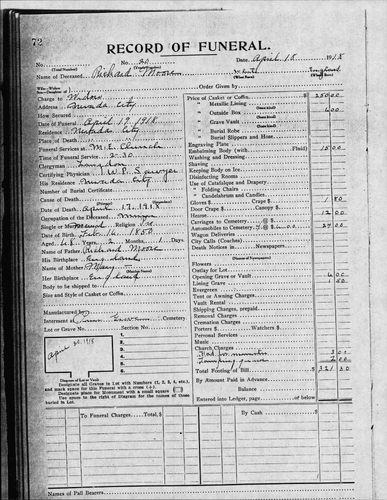 72
RECORD OF FUNERAL.
No. No. 30 Date, April 18 1918
(Total Number) (Yearly Number)
Name of Deceased, Richard Moore White England
(What Race) (Where Born)
Wife—Widow—
Son—Daughter of
Charge to Widow
Nevada City
How Secured
Date of Funeral April 19 1918
Nevada City
Place of Death
Funeral Services at M. E. Church
Time of Funeral Service 2:30
Clergyman
Certifying Physician W P Sawyer
His Residence Nevada City
Number of Burial Certificate
Cause of Death
Date of Death April 17 1918
Occupation of the Deceased Miner
Single or Married Religion
Date of Birth Feb 16 1850
Aged 68 Years, 2 Months, 1 Days
Name of Father Richard Moore
His Birthplace England
Name of Mother Mary
Her Birthplace England
Body to be shipped to
Size and Style of Casket or Coffin
Interment at Pine Grove Cemetery
Lot or Grave No. Section No.
1.
2.
3.
4.
5.
April 1918
Diagram of Lot or Vault
Designate all Graves in Lot with Numbers (1, 2, 3, 4, etc.),
and mark space for this Funeral with a cross (+)
Designate place for Monument with a small square
Use space to right of Diagram for the names of those
buried in Lot.
Order Given by
Price of Casket or Coffin $ 250 00
" Metallic Lining
" Outside Box 6 00
" Grave Vault
" Burial Robe
" Burial Slippers and Hose
Engraving Plate
Embalming Body (with Fluid) 15 00
Washing and Dressing
Shaving
Keeping Body on Ice
Disinfecting Rooms
Use of Catafalque and Drapery
" Folding Chairs
" Candelabrum and Candles
Gloves $ Crape $ 1 50
Door Crape $ Canopy $
Hearse 12 00
Carriages to Cemetery @ $
Automobiles to Cemetery @ $ 27 00
Wagon Deliveries
City Calls (Coaches)
Death Notices in Newspapers
Flowers
Outlay for Lot
Opening Grave or Vault 6 00
Lining Grave 1 50
Evergreen
Tent or Awning Charges
Vault Rental
Shipping Charges, prepaid
Removal Charges
Cremation Charges
Porters $ Watchers $
Personal Services
Music
Church Charges
Total Footing of Bill $ 321
By Amount Paid in Advance
Balance
Entered into Ledger, page of below
To Funeral Charges. Total, $ By Cash $
Names of Pall Bearers